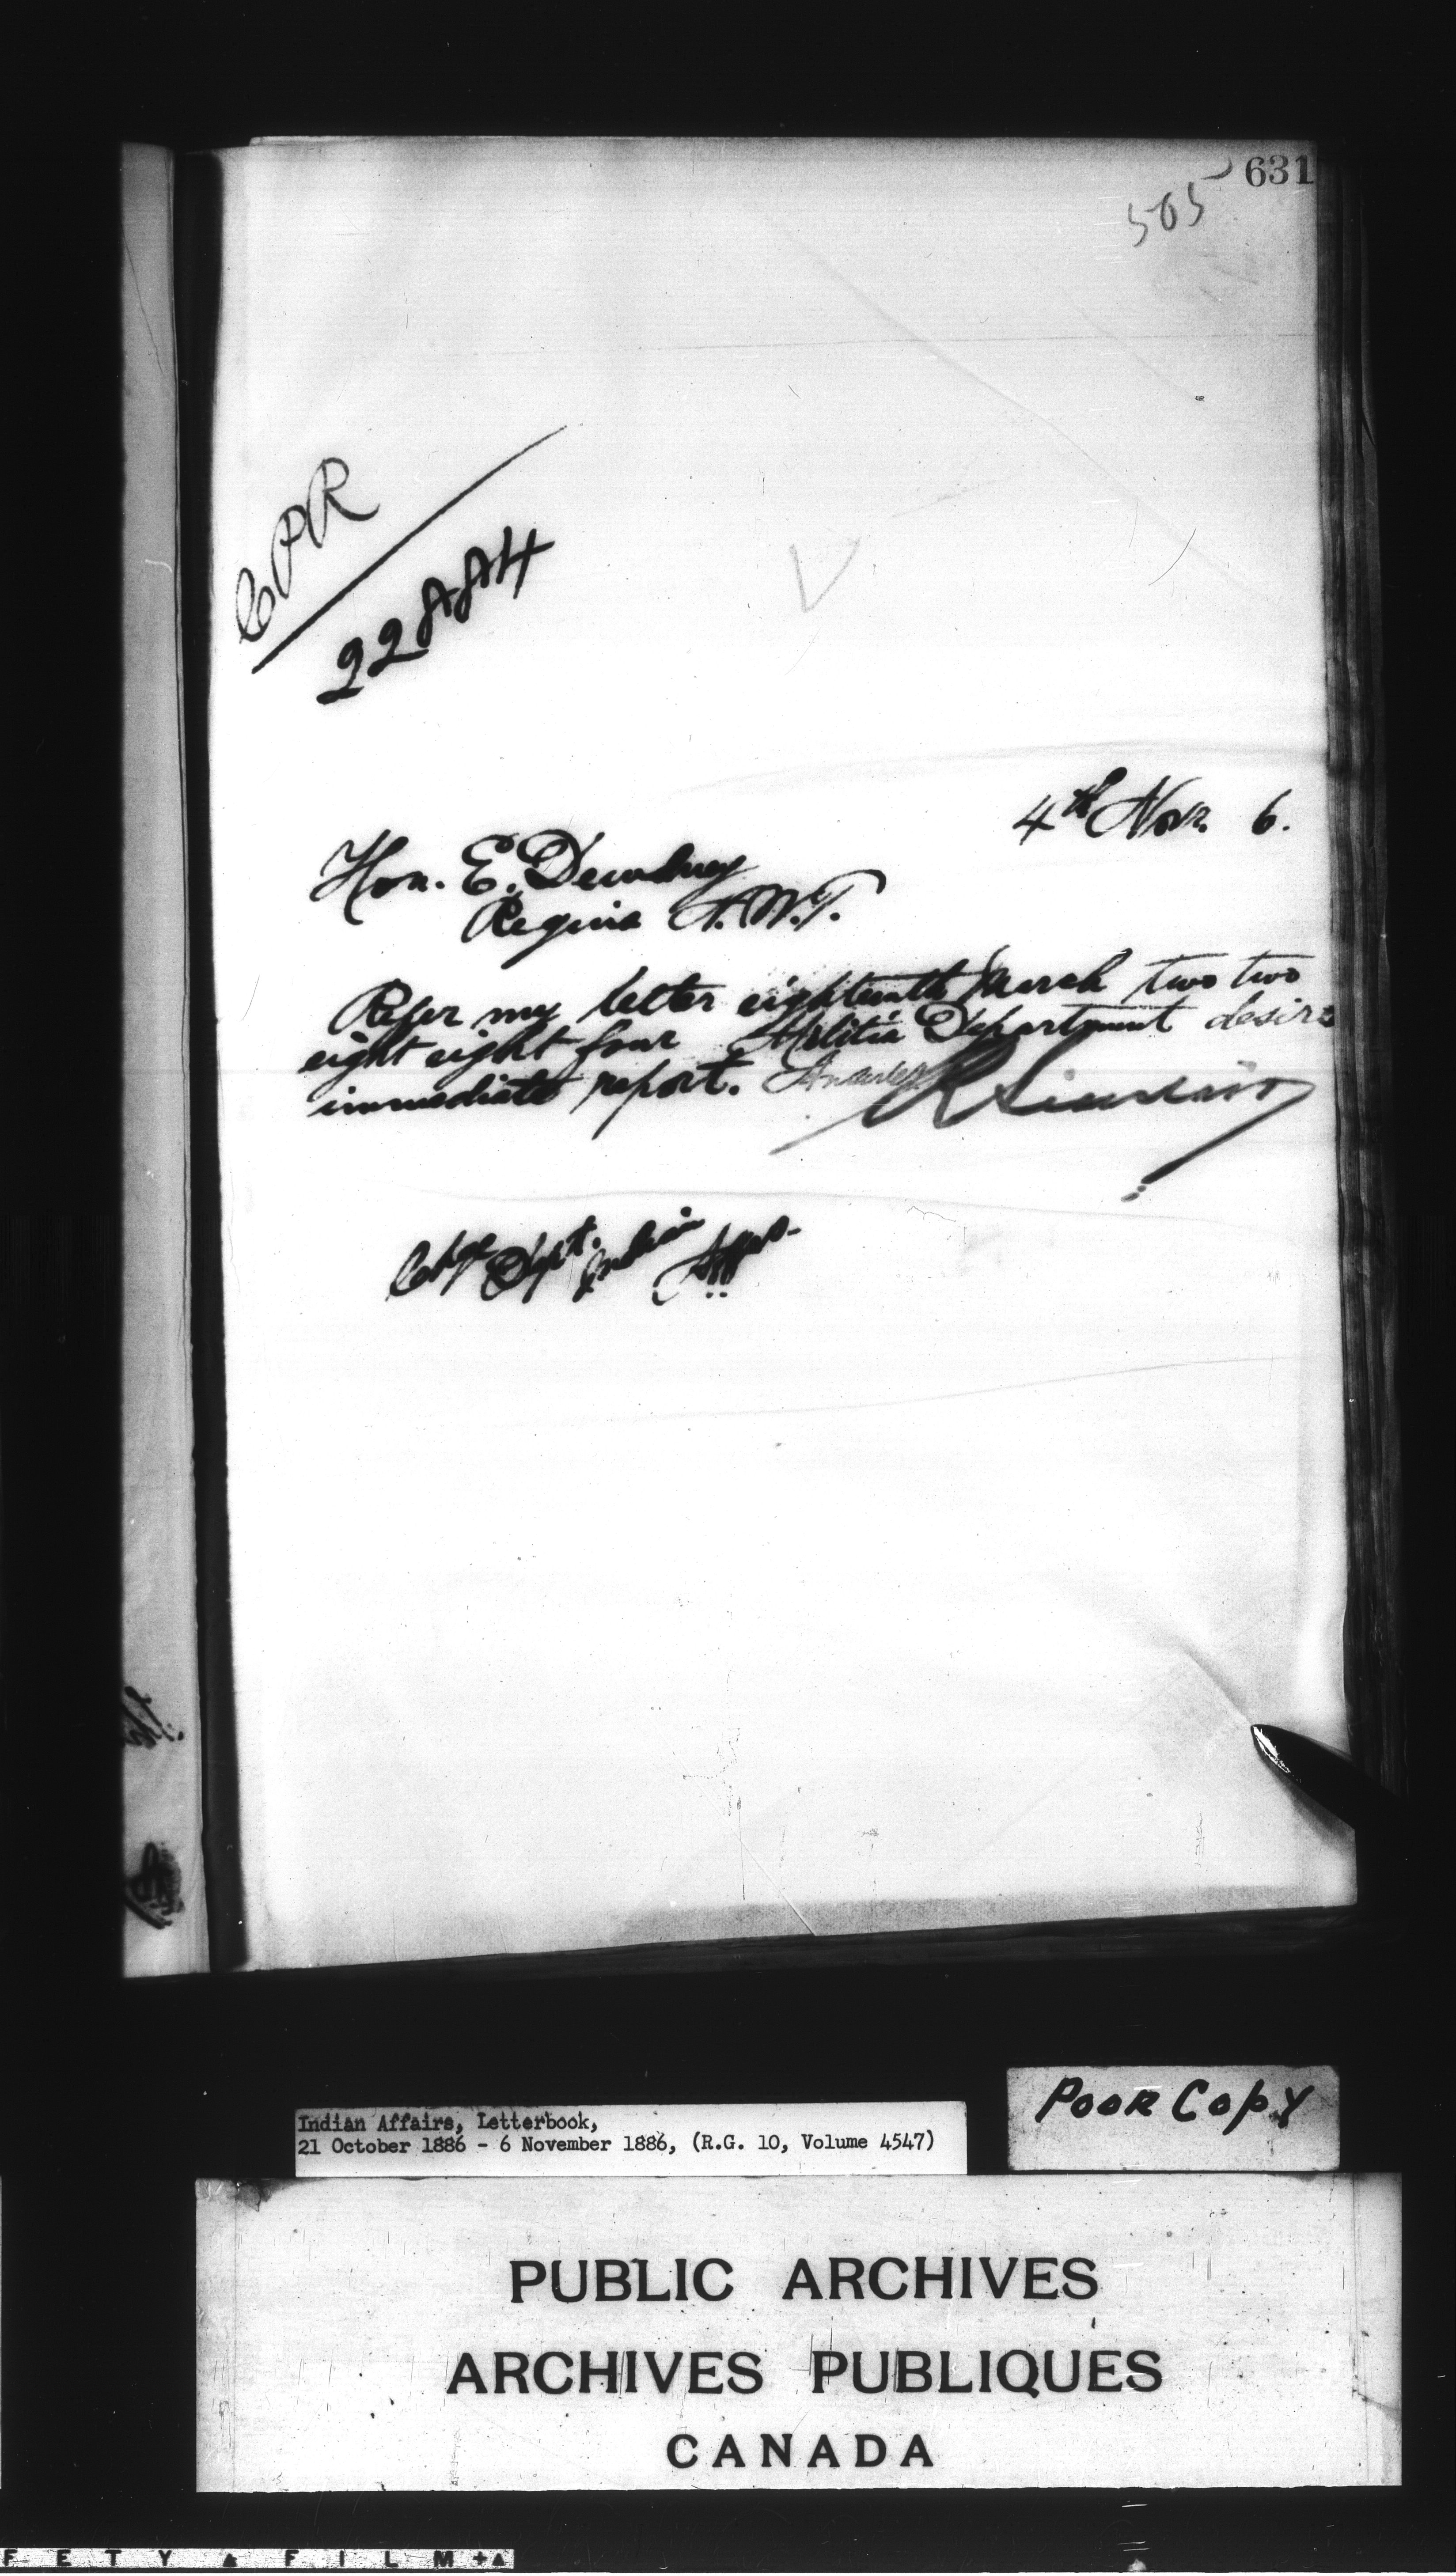 631
505
CPR
22884
4th Novr. 6.
Hon. E. Dewdney
Regina N.W.T.
Refer my letter eighteenth March two two
eight eight four Militia Department desire
immediate report. Answer
Chge Dept. Indian Affrs.
Poor Copy
Indian Affairs, Letterbook,
21 October 1886 - 6 November 1886, (R.G. 10, Volume 4547)
PUBLIC ARCHIVES
ARCHIVES PUBLIQUES
CANADA
FETY FILM